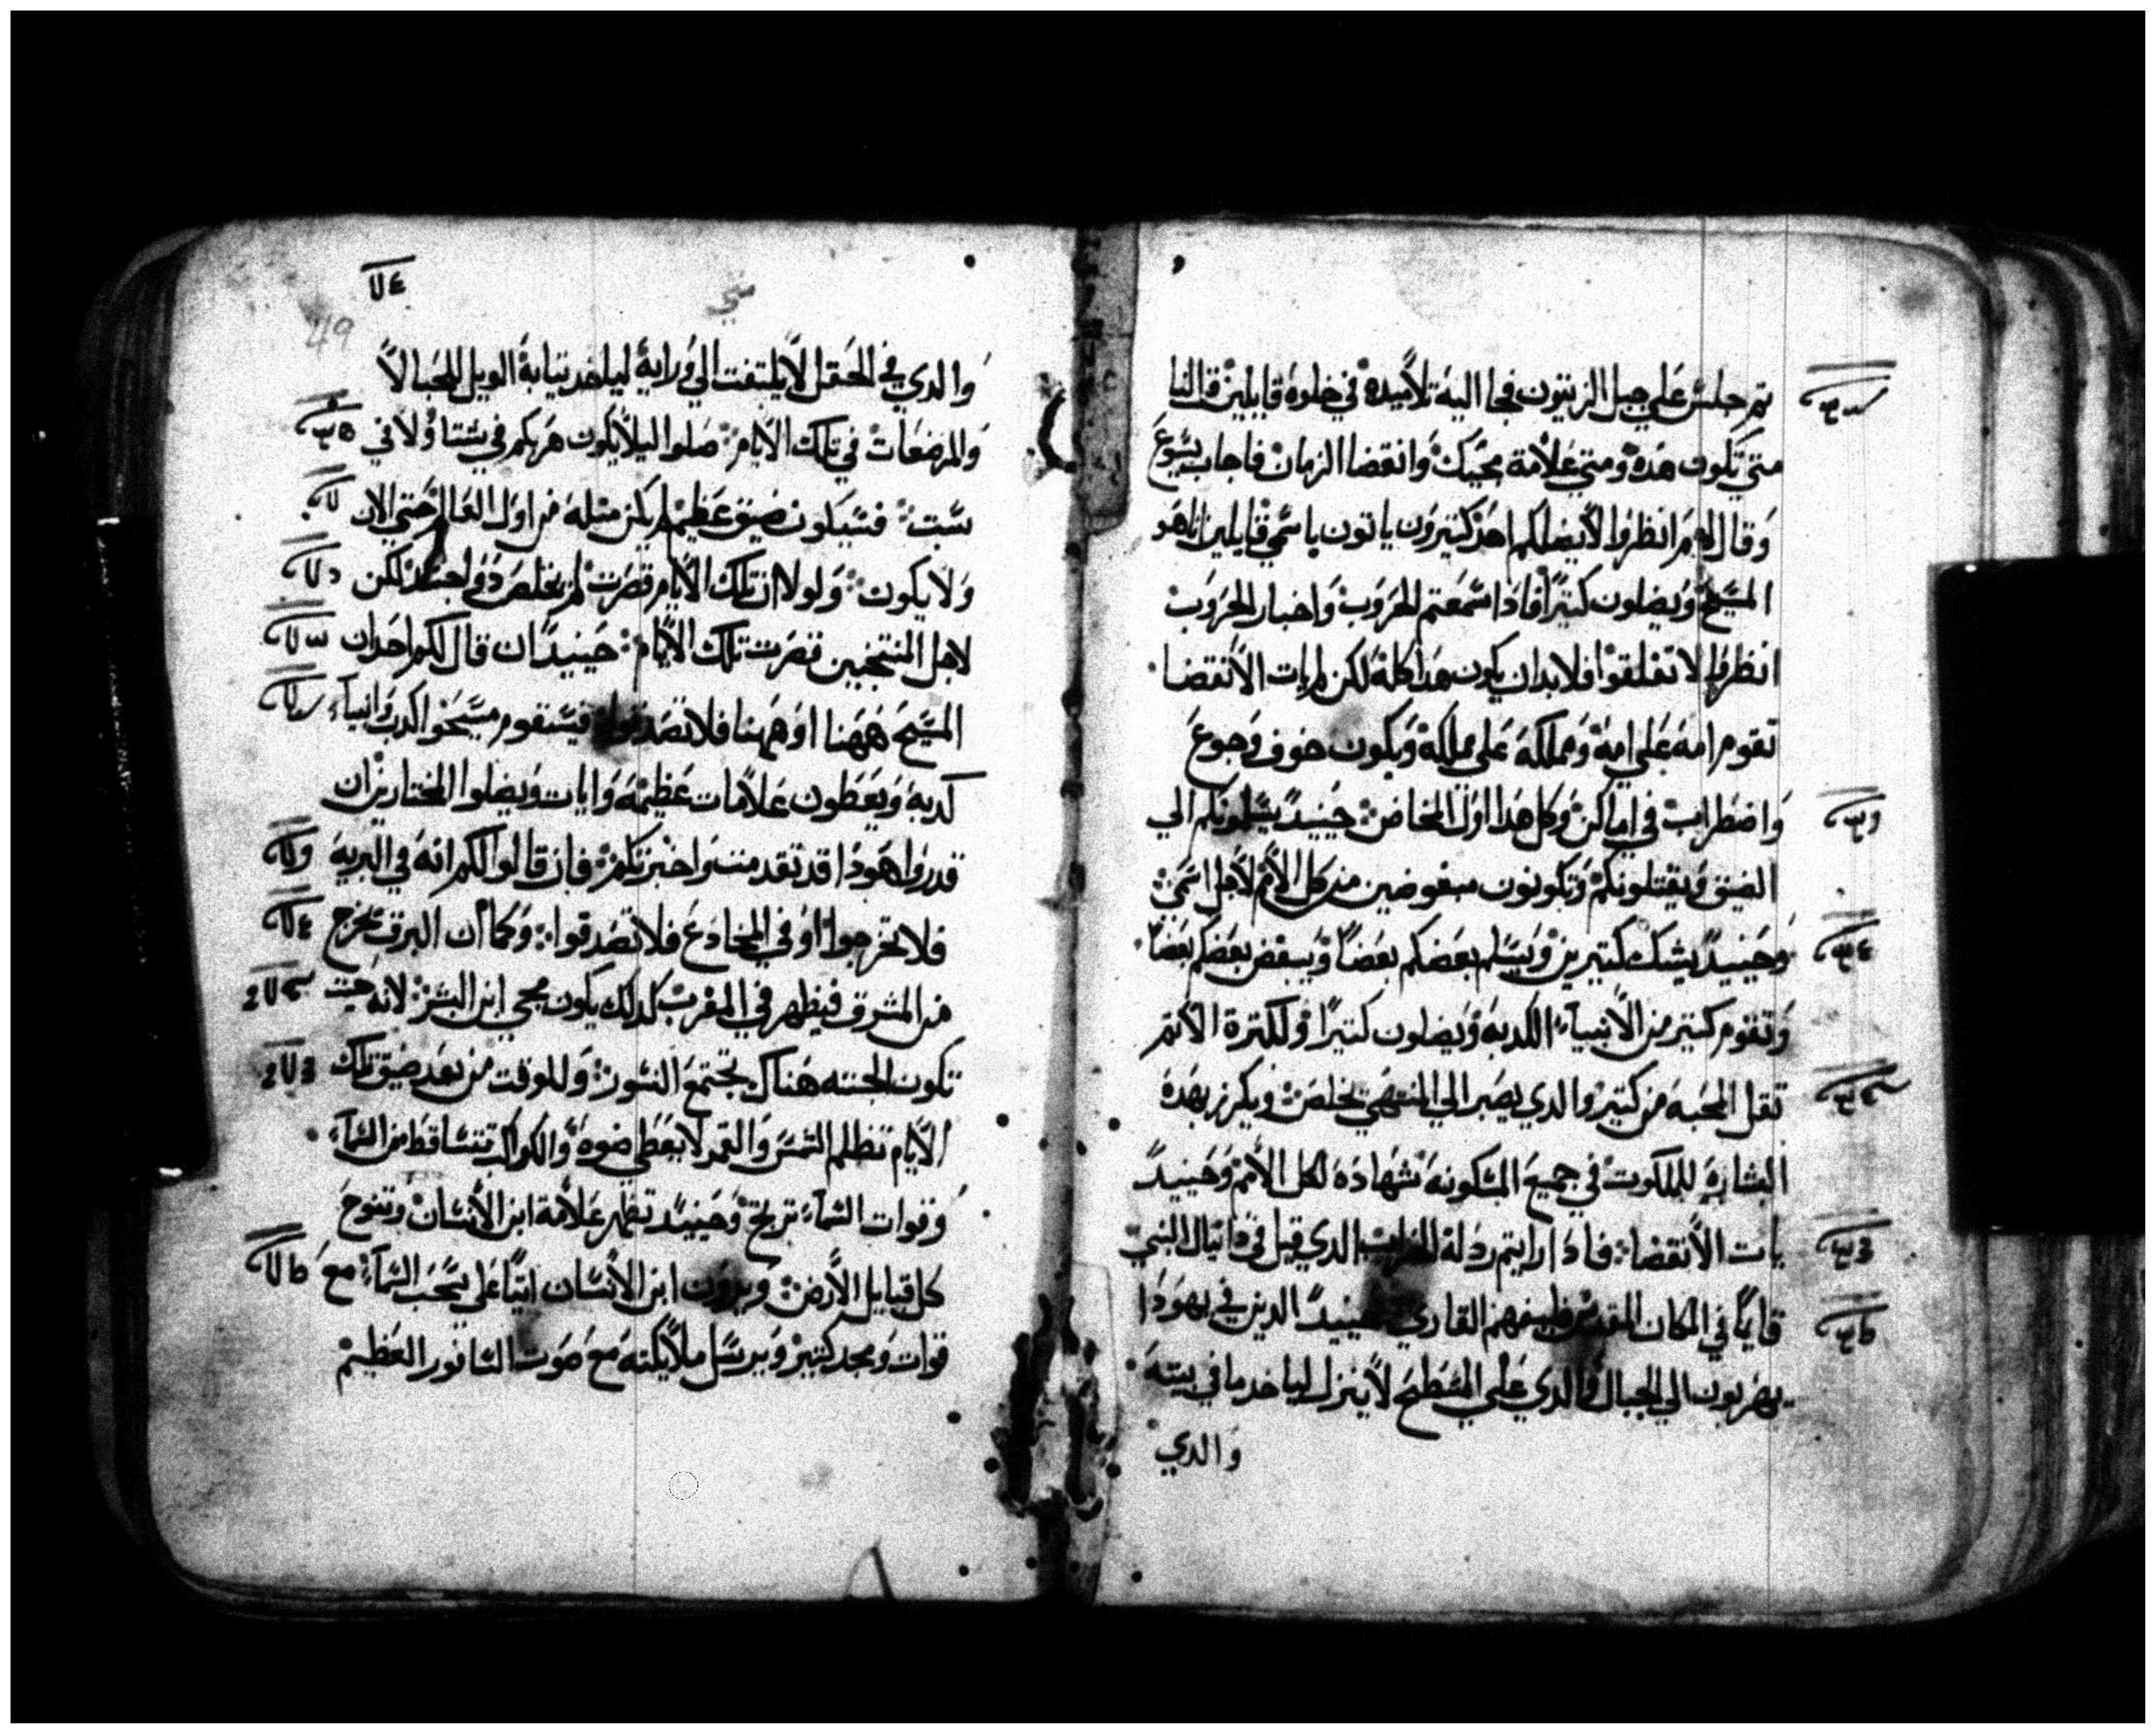 تم جلس علي جبل الزيتون فجا اليه تلاميده في خلوه قايلين قل لنا
متي تكون هده ومتي علامة مجيك وانقضا الزمان فاجاب يسوع
وقال لهم انظروا لا يضلكم احد كتيرون ياتون باسمي قايلين انا هو
المسيح ويضلون كتيرا فادا سمعتم الحروب واخبار الحروب
انظروا لا تقلقوا فلا بد ان يكون هدا كله لكن لم يات الانقضا
تقوم امه علي امه ومملكه علي مملكه ويكون خوف وجوع
واضطراب في اماكن وكل هدا اول المخاض حينيد يسلمونكم الي
الضيق ويقتلونكم وتكونون مبغوضين من كل الامم لاجل اسمي
وحينيد يشك كتيرين ويسلم بعضكم بعضا ويبغض بعضكم بعضا
وتقوم كتير من الانبياء الكدبه ويضلون كتيرا ولكترة الاتم
تقل المحبه من كتير والدي يصبر الي المنتهي يخلص ويكرز بهده
البشاره للملكوت في جميع المسكونه شهاده لكل الامم وحينيد
يات الانقضا فادا رايتم ردلة الخراب الدي قيل في دانيال النبي
قايما في المكان المقدس فليفهم القاري حينيد الدين في يهودا
يهربون الي الجبال والدي علي السطح لا ينزل لياخد ما في بيته
والدي
متي
49
والدي في الحقل لا يلتفت الي ورايه لياخد تيابه الويل للحبالا
والمرضعات في تلك الايام صلوا ليلا يكون هربكم في شتا ولا في
سبت فسيكون ضيق عظيم لم يكن متله من اول العالم حتي الان
ولا يكون ولولا ان تلك الايام قصرت لم يخلص دو جسد لكن
لاجل المنتجبين قصرت تلك الايام حينيد ان قال لكم احد ان
المسيح ههنا او ههنا فلا تصدقوا فسيقوم مسيحوا الكدب وانبياء
كدبه ويعطون علامات عظيمه وايات ويضلوا المختارين ان
قدروا هودا قد تقدمت واخبرتكم فان قالوا لكم انه في البريه
فلا تخرجوا او في المخادع فلا تصدقوا وكما ان البرق يخرج
من المشرق فيظهر في المغرب كدلك يكون مجي ابن البشر لانه حيت
تكون الجته هناك يجتمع النسور وللوقت من بعد ضيق تلك
الايام تظلم الشمس والقمر لا يعطي ضوه والكواكب تتساقط من السماء
وقوات السماء ترتج وحينيد تظهر علامة ابن الانسان وتنوح
كل قبايل الارض ويرون ابن الانسان اتيا علي سحب السماء مع
قوات ومجد كتير ويرسل ملايكته مع صوت السافور العظيم